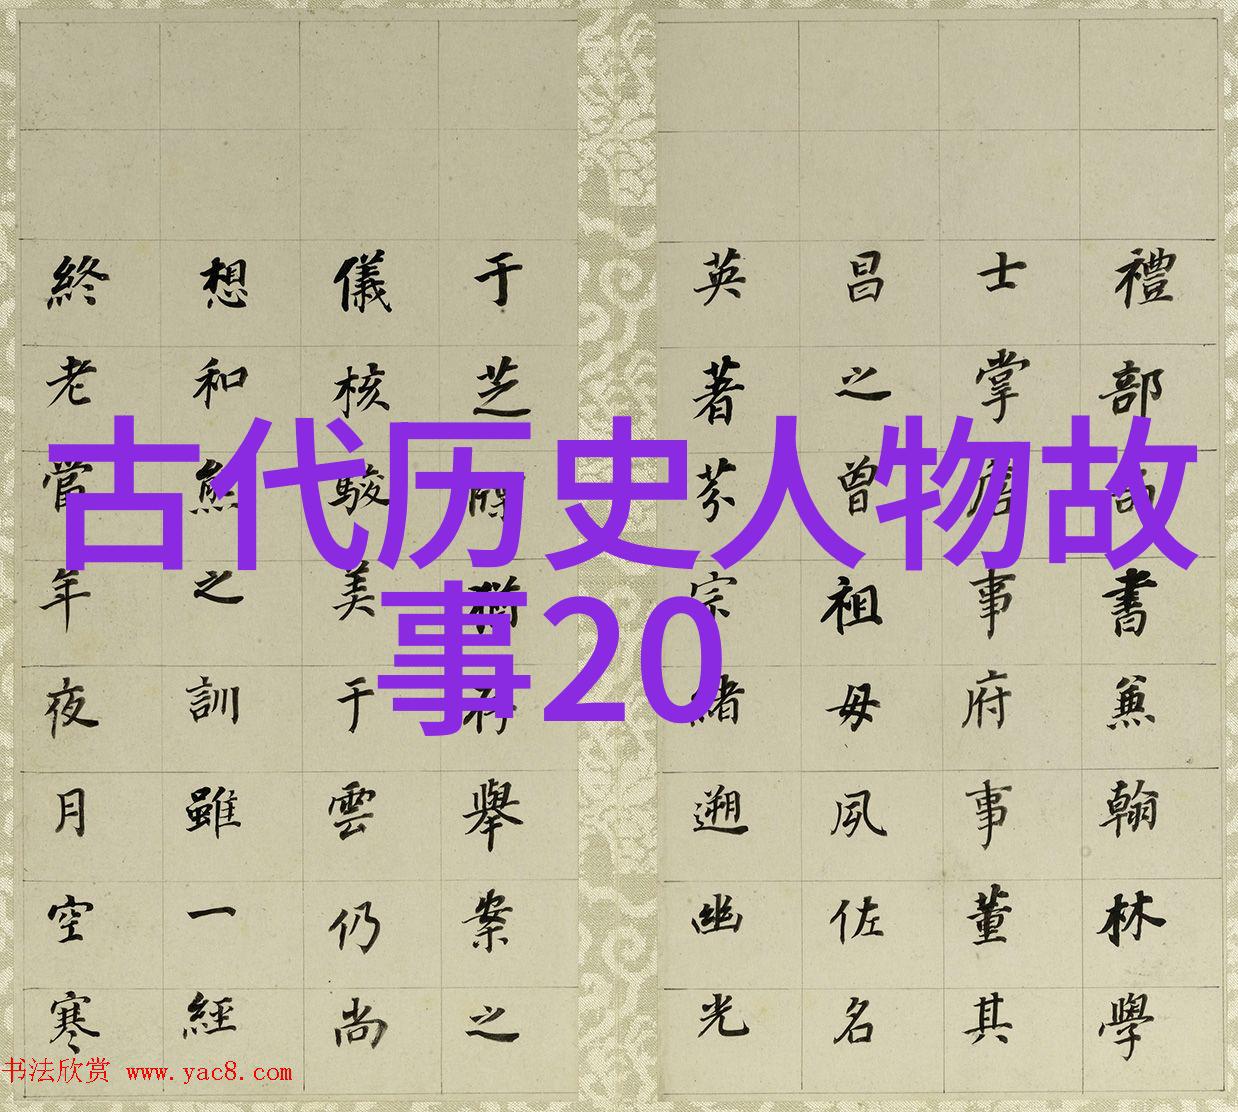 古代历史人物故
事20
禮部尚書兼翰林學
士掌詹事府事董其
昌之曾祖母夙佐名
英著芬宗緒遡幽光
于芝舉案之
儀核駿美于雲仍尚
想和熊之訓雖一經
終老當年夜月空寒
书法欣赏 www.yac8.com